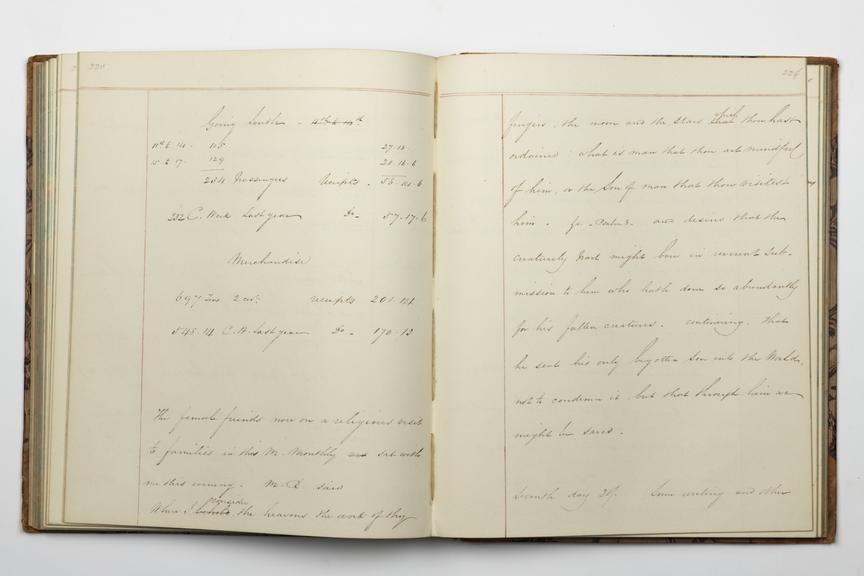 225
Going South - 4th to 14th
11th to 14 . 115 . 27.10.
15 to 17 . 129
234 Passengers receipts . 6
232 C. Week Last year Do - 57.17.6
Merchandise
697 Tons 2 cwt. receipts 201.
548.14 C. W. Last year Do - 170.13
The female friends now on a religious visit
to families in this M. Monthly sat with
me this evening . M. said
When I consider, the heavens the work of thy
226
fingers, the moon and the stars which thou hast
ordained: what is man that thou art mindful
of him, or the Son of man that thou visitest
him . and desires that the
creaturely part might bow in reverent Sub-
mission to him who hath done so abundantly
for his fallen creatures . continuing, that
he sent his only begotten Son into the World,
not to condemn it, but that through him we
might be saved .
Seventh day Some writing and other